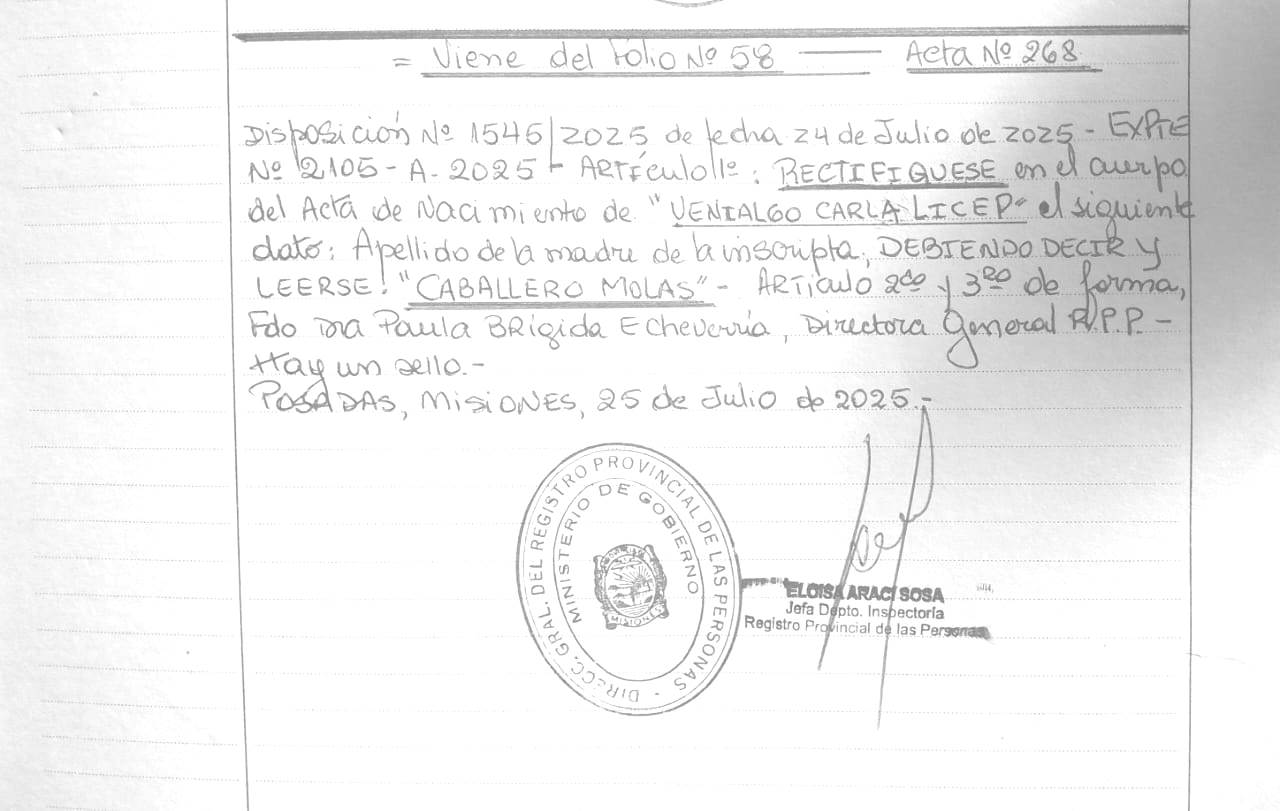 = Viene del Folio Nº 58 —— Acta Nº 268
Disposición Nº 1545/2025 de fecha 24 de Julio de 2025 - EXPTE
Nº 2105 - A - 2025 - ARTÍCULO 1º: RECTIFIQUESE en el cuerpo
del Acta de Nacimiento de "VENIALGO CARLA LICEP" el siguiente
dato: Apellido de la madre de la inscripta, DEBIENDO DECIR Y
LEERSE: "CABALLERO MOLAS" - ARTICULO 2do y 3ro de forma,
Fdo Dra Paula BRígida Echeverría, Directora General R.P.P. -
Hay un sello.-
POSADAS, MISIONES, 25 de Julio de 2025.-
DIRECC. GRAL. DEL REGISTRO PROVINCIAL DE LAS PERSONAS -
MINISTERIO DE GOBIERNO
MISIONES
ELOISA ARACI SOSA
Jefa Dpto. Inspectoría
Registro Provincial de las Personas